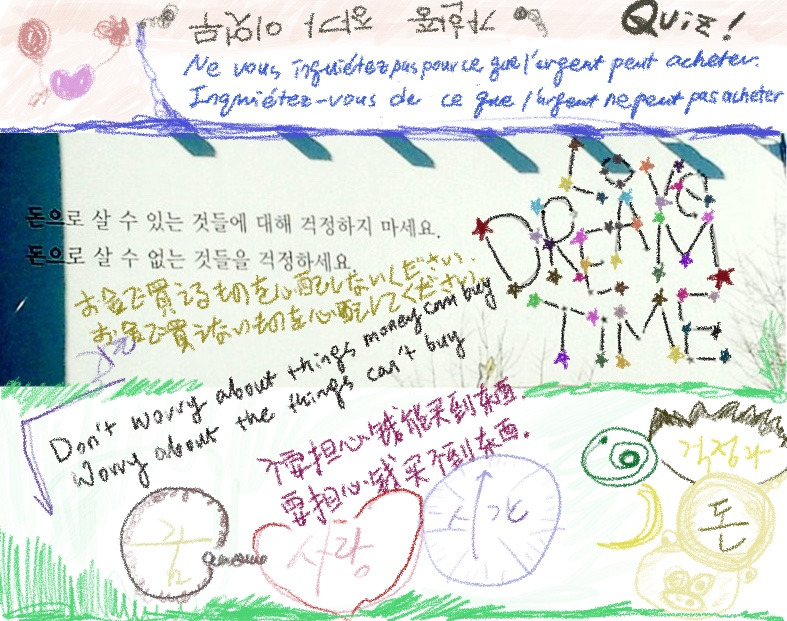 Quiz!
Ne vous inquiétez pas pour ce que l'argent peut acheter.
Inquiétez-vous de ce que l'argent ne peut pas acheter
돈으로 살 수 있는 것들에 대해 걱정하지 마세요.
돈으로 살 수 없는 것들을 걱정하세요
LOVE
DREAM
TIME
お金で買えるものを心配しないください.
お金で買えないものを心配してください.
Don't worry about things money can buy
Worry about the things can't buy
不要担心钱能买到东西.
要担心钱买不到东西.
꿈
사랑
시간
걱정과
돈